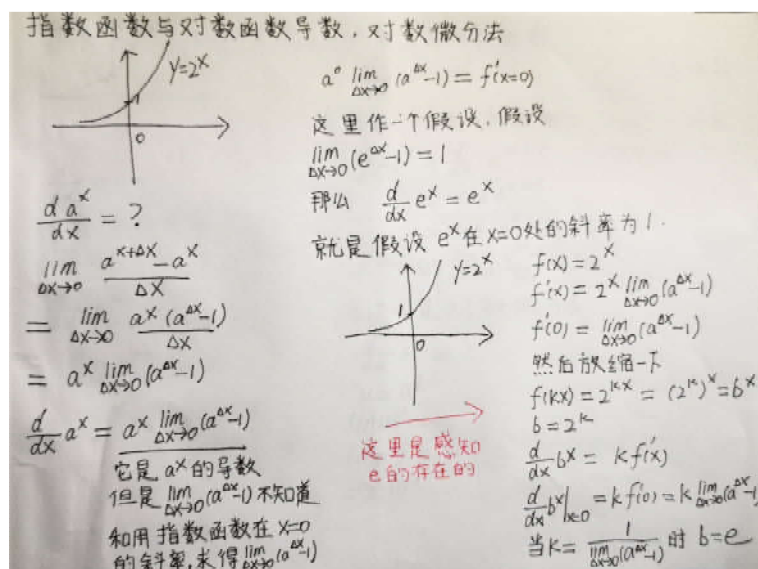 指数函数与对数函数导数，对数微分法
y=2^x
1
0
\frac{d a^x}{dx} = ?
\lim_{Δx→0} \frac{a^{x+Δx}-a^x}{Δx}
= \lim_{Δx→0} \frac{a^x(a^{Δx}-1)}{Δx}
= a^x \lim_{Δx→0}(a^{Δx}-1)
\frac{d}{dx} a^x = a^x \lim_{Δx→0}(a^{Δx}-1)
它是 a^x 的导数
但是 \lim_{Δx→0}(a^{Δx}-1) 不知道
和用指数函数在 x=0
的斜率,求得 \lim_{Δx→0}(a^{Δx}-1)
a^0 \lim_{Δx→0}(a^{Δx}-1) = f'(x=0)
这里作一个假设,假设
\lim_{Δx→0}(e^{Δx}-1) = 1
那么 \frac{d}{dx} e^x = e^x
就是假设 e^x 在 x=0处的斜率为 1.
y=2^x
1
0
这里是感知
e的存在的
f(x) = 2^x
f'(x) = 2^x \lim_{Δx→0}(a^{Δx}-1)
f'(0) = \lim_{Δx→0}(a^{Δx}-1)
然后放缩一下
f(kx) = 2^{kx} = (2^k)^x = b^x
b = 2^k
\frac{d}{dx} b^x = k f'(x)
\frac{d}{dx} b^x|_{x=0} = k f'(0) = k \lim_{Δx→0}(a^{Δx}-1)
当 k = \frac{1}{\lim_{Δx→0}(a^{Δx}-1)} 时 b=e